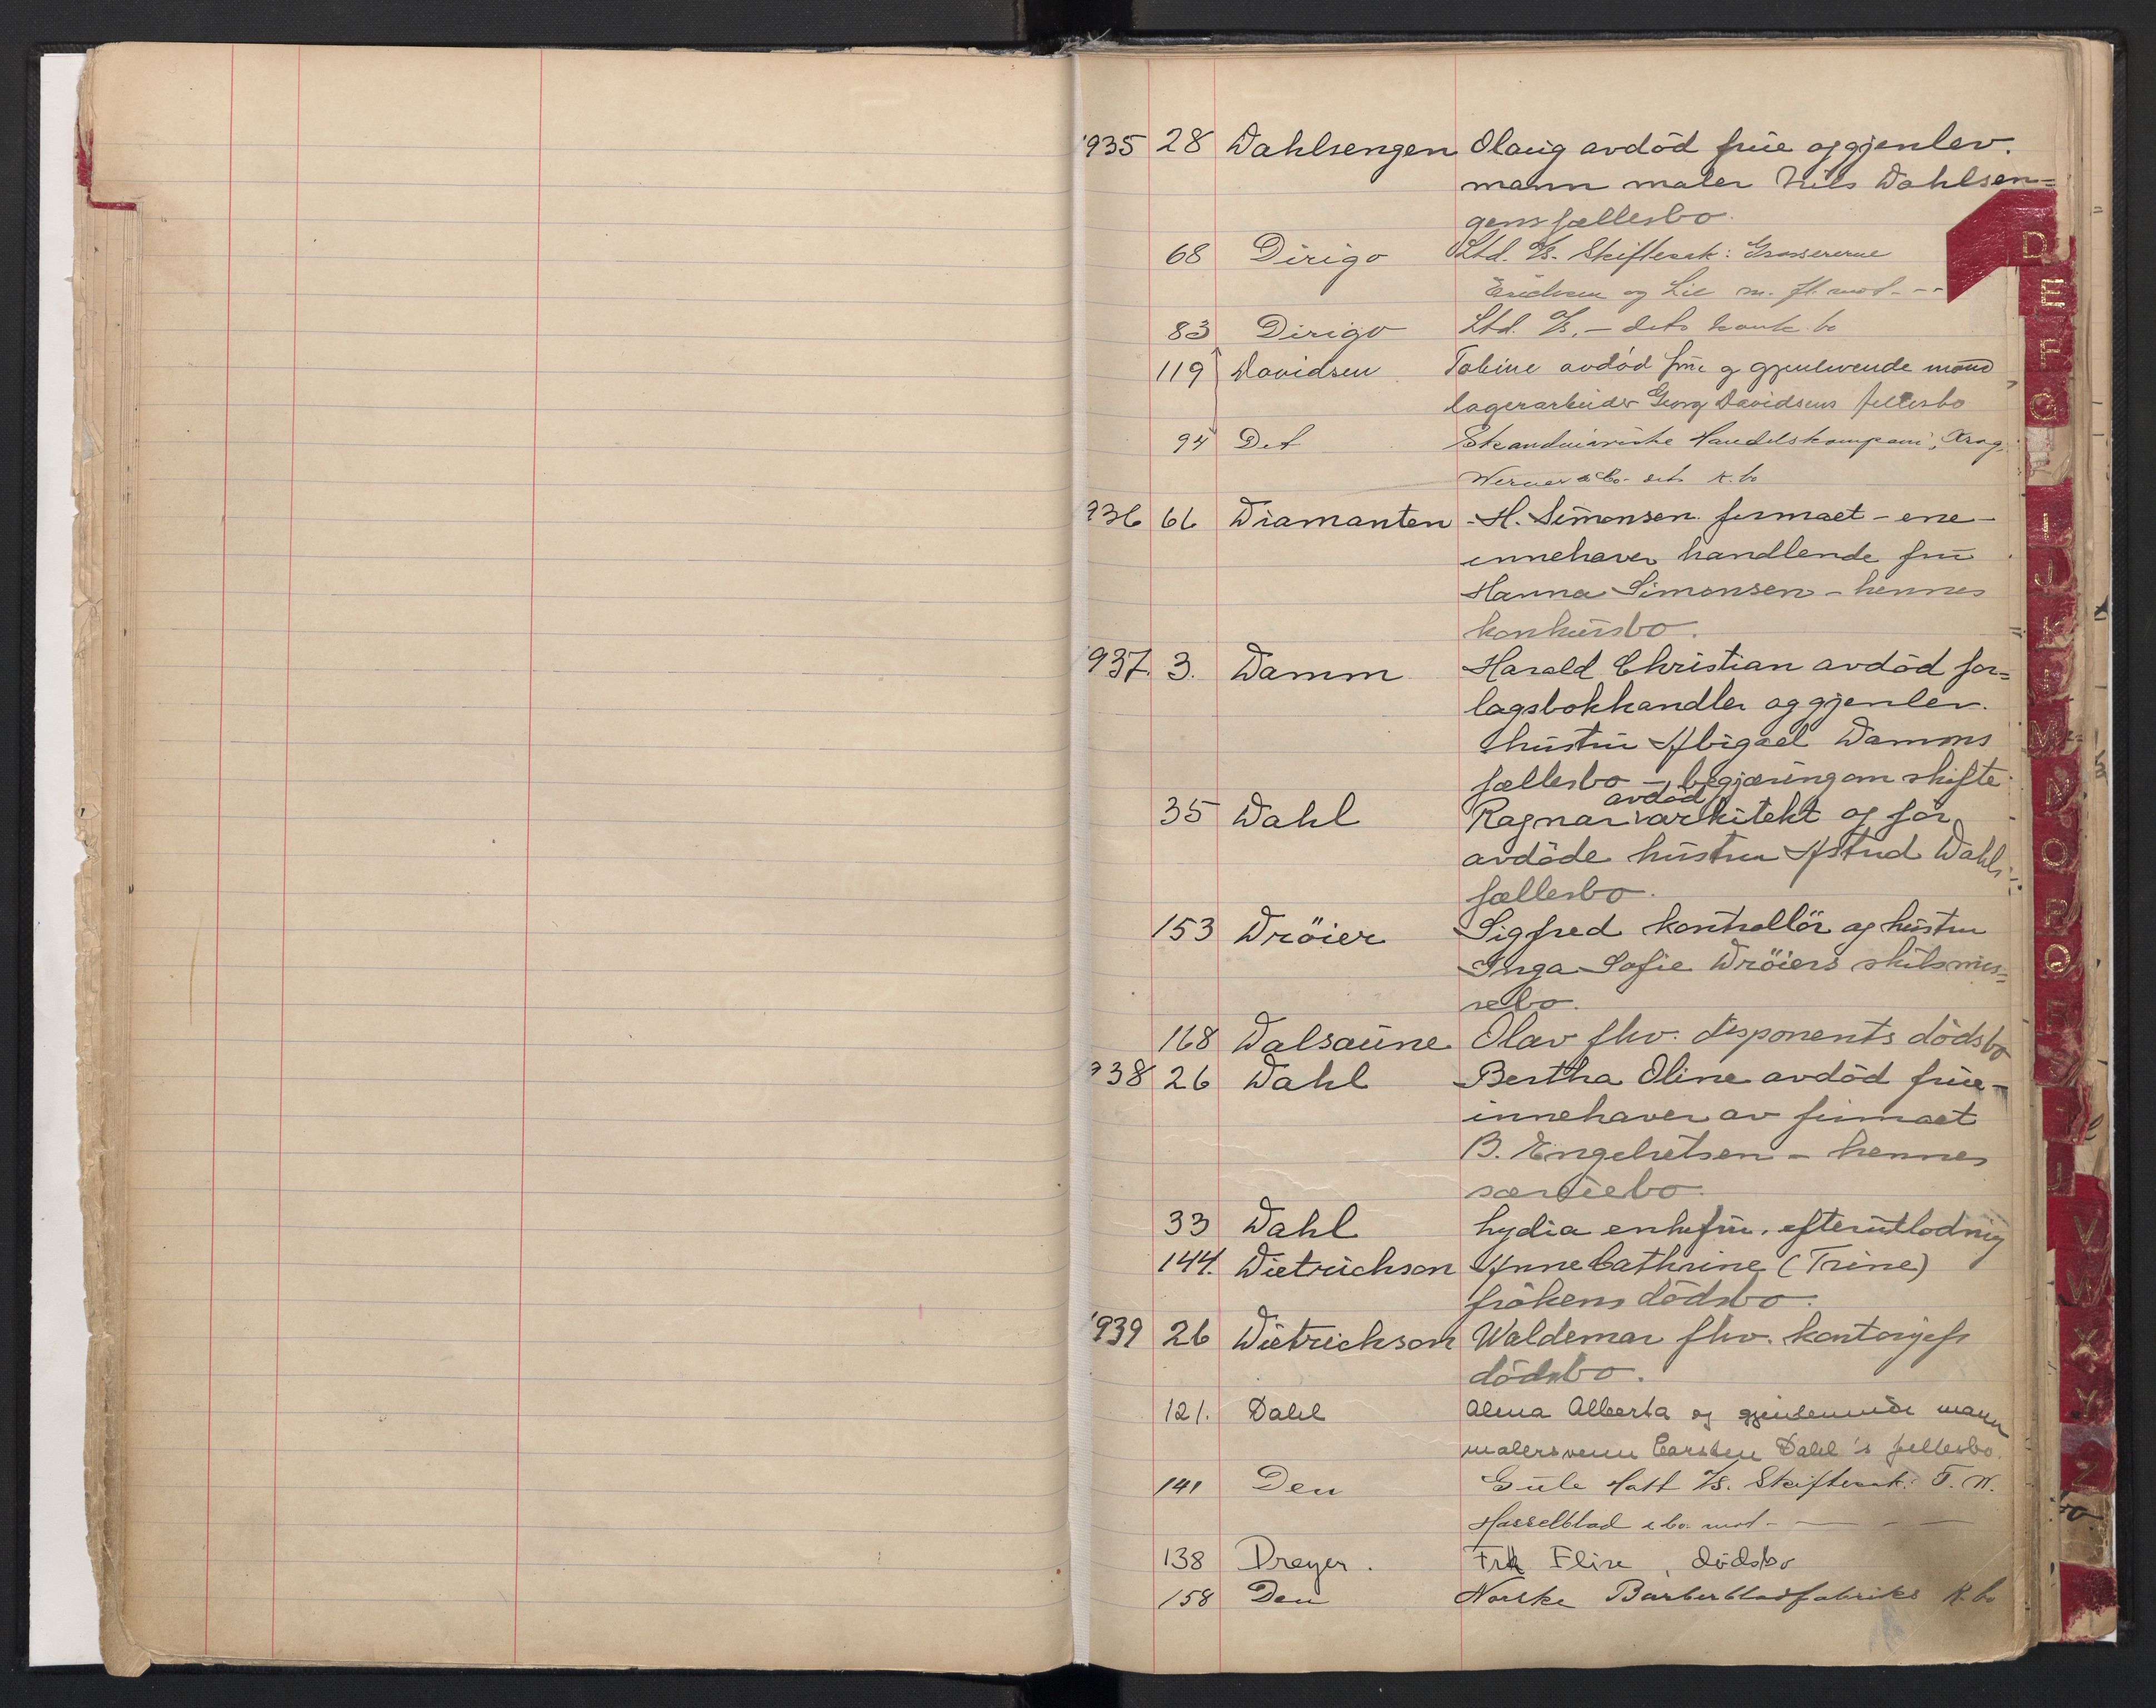 1935 28 Dahlsengen Olaug avdöd frue og gjenlev.
mann maler Nils Dahlsen=
gens fællesbo.
68 Dirigo Ltd. A/s. Skiftesak: Grossererne
Erichsen og Lie m. fl. mot - - -
83 Dirigo Ltd. A/s. — dets konk. bo
119 Davidsen Tobine avdöd frue og gjenlevende mand
lagerarbeider Georg Davidsens fellesbo
94 Det Skandinaviske Handelskompani, Krag,
Werner & Co. dets k. bo
1936 66 Diamanten - H. Simonsen firmaet - ene-
innehaver handlende frue
Hanna Simonsen - hennes
konkursbo.
1937. 3. Damm Harald Christian avdöd for=
lagsbokhandler og gjenlev.
hustru Abigael Damms
fællesbo - begjæring om skifte.
35 Dahl Ragnar avdöd arkitekt og for
avdöde hustru Astrid Dahls
fællesbo.
153 Dröier Sigfred kontrollör og hustru
Inga Sofie Dröiers skilsmis=
sebo.
168 Dalsaune Olav fhv. disponents dödsbo
1938 26 Dahl Bertha Oline avdöd frue -
innehaver av firmaet
B. Engebretsen - hennes
særeiebo.
33 Dahl Lydia enkefru. efterutlodning
144. Dietrichson Anne Cathrine (Trine)
frökens dödsbo.
1939 26 Dietrichson Waldemar fhv. kontorsjefs
dödsbo.
121. Dahl Alma Alberta og gjenlevende mann
malersvenn Carsten Dahl's fellesbo.
141 Den Gule Hatt A/s. Skiftesak: F. W.
Hasselblad & Co. mot - — - —
138 Dreyer. Frk Elise, dödsbo
158 Den Norske Barberbladfabriks K. bo
D
E
F
G
I
J
K
M
N
O
P
Q
V
W
X
Y
Z